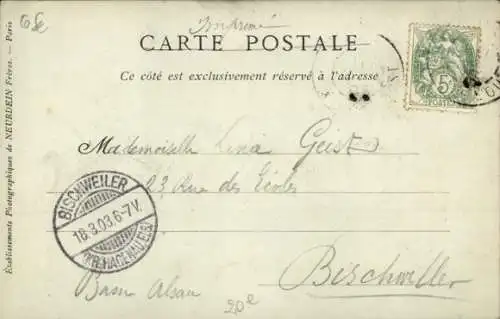 6e
Imprimé
CARTE POSTALE
Ce côté est exclusivement réservé à l'adresse
5
Mademoiselle Lina Geist
23 Rue des Écoles
BISCHWEILER
18.3.03.6-7V.
(KR. HAGENAU ELS.)
Bischwiller
Basse Alsace
20e
Établissements Photographiques de NEURDEIN Frères. — Paris